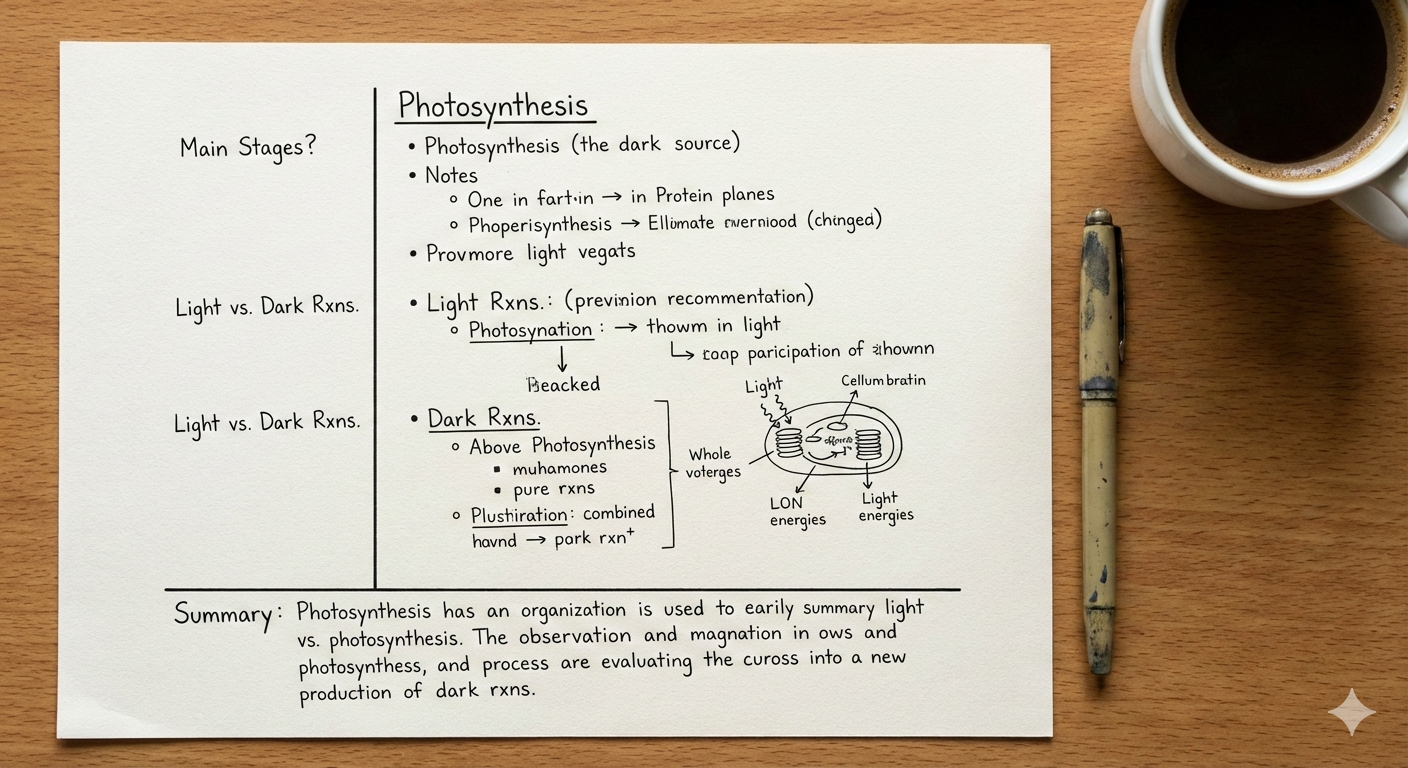 Photosynthesis
Main Stages?
• Photosynthesis (the dark source)
• Notes
One in fart·in → in Protein planes
Phoperisynthesis → (chinged)
• Provmore light vegats
Light vs. Dark Rxns.
• Light Rxns.: (previnion recommentation)
Photosynation : → thowm in light
↳ paricipation of
↓
Beacked
Light vs. Dark Rxns.
• Dark Rxns.
Above Photosynthesis
▪ muhamones
▪ pure rxns
Plusthiration: combined
havnd → park rxn⁺
Whole
voterges
Light
Cellum bratin
LON
energies
Light
energies
Summary: Photosynthesis has an organization is used to earily summary light
vs. photosynthesis. The observation and magnation in ows and
photosynthess, and process are evaluating the cuross into a new
production of dark rxns.